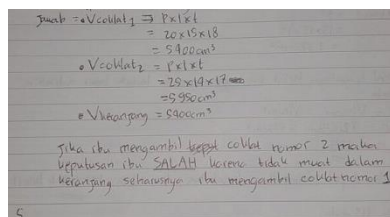 Jawab = • Vcoklat₁ ⇒ P x l x t
= 20 x 15 x 18
= 5.400 cm³
• Vcoklat₂ = P x l x t
= 25 x 14 x 17
= 5.950 cm³
• Vkeranjang = 5400 cm³
Jika ibu mengambil coklat nomor 2 maka
keputusan ibu SALAH karena tidak muat dalam
keranjang seharusnya ibu mengambil coklat nomor 1